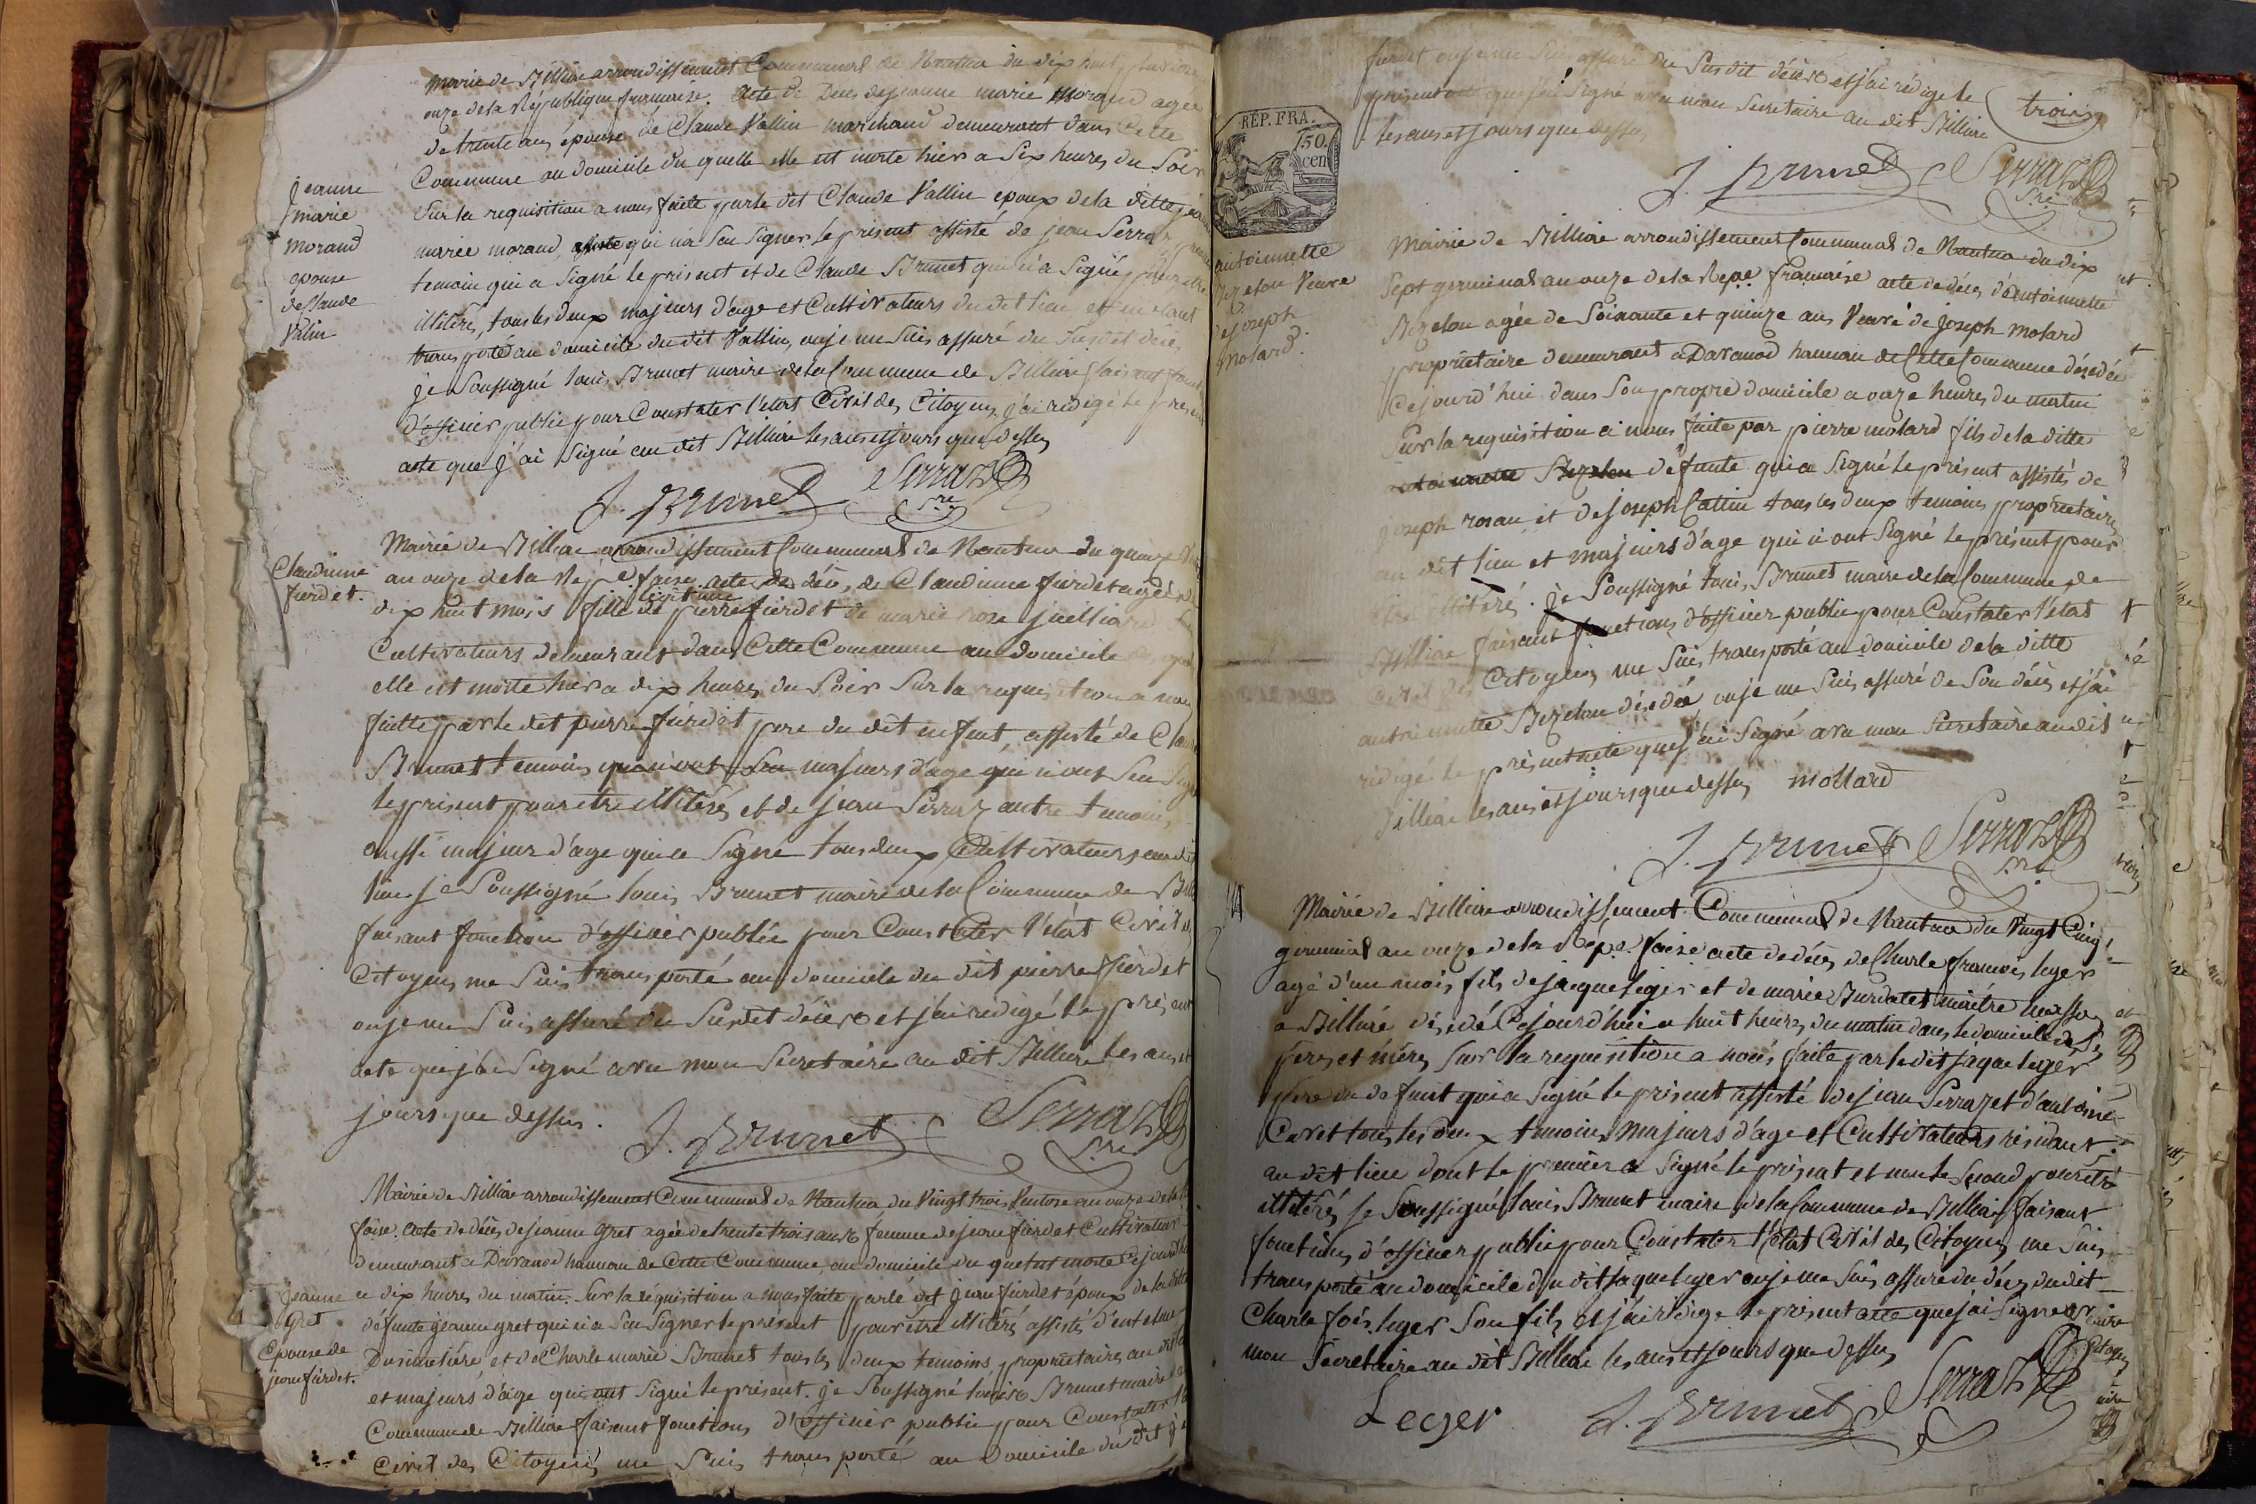 Mairie de Billiac arrondissement Communal de Nantua du dix huit
onze de la République francaise. Acte de Deces de jeanne marie Morand agée
de trente ans épouse de Claude Vallin marchand demeurant dans Cette
Commune au domicile du quelle elle est morte hier a Six heures du Soir
Jeanne
marie
morand
epouse
de Claude
Valin
Sur la requisition a nous faite par le dit Claude Vallin epoux de la ditte
marie morand, qui n'a Seu Signer le présent assisté de jean Serraz
temoin qui a Signé le présent et de Claude Brunet qui n'a Signé pour etre
illitéré, tous les deux majeurs d'age et Cultivateurs du dit lieu
transporté au domicile du dit Vallin, ou je me Suis assuré du Susdit décès
je Soussigné louis Brunet maire de la Commune de Billiac faisant
d'officier public pour Constater l'etat Civil des Citoyens, j'ai redigé le
acte que j'ai Signé au dit Billiac les ans et jours que dessus
J. Brunet Serraz
Sre
Claudinne
fierdet.
Mairie de Billiac arrondissement Communal de Nantua du quinze
an onze de la Repe. faise. acte de déces de Claudinne fierdet agée de
dix huit mois fille légitime de pierre fierdet de marie
Cultivateurs demeurant dans Cette Commune au domicile
elle est morte hier a dix heures du Soir Sur la requisition a nous
faitte par le dit pierre fierdet pere du dit enfant, assisté de
Brunet temoins majeurs d'age qui n'ont Seu
le présent pour etre illitéré, et de jean Serraz autre temoin
aussi majeur d'age qui a Signé tous deux Cultivateurs au dit
lieu je Soussigné louis Brunet maire de la Commune de
faisant fonction d'officier public pour Constater l'etat Civil
Citoyens me Suis transporté au domicile du dit pierre fierdet
ou je me Suis assuré du Susdit décès et j'ai rédigé le présent
acte que j'ai Signé avec mon Secretaire au dit Billiac les ans et
jours que dessus.
J. Brunet Serraz
Sre
Mairie de Billiac arrondissement Communal de Nantua du Vingt trois Ventose an onze de la
faise. acte de décès de jeanne Gret agée de trente trois ans femme de jean fierdet Cultivateur
demeurant a Davanod hameau de Cette Commune, au domicile du quel est morte
Jeanne
Gret
Epouse de
jean fierdet.
a dix heures du matin. Sur la réquisition a nous faite par le dit jean fierdet époux de la ditte
défunte jeanne gret qui n'a Seu Signer le présent pour être illitéré, assistés d'
et de Charle marie Brunet tous les deux temoins propriétaires au dit
et majeurs d'age qui ont Signé le présent. je Soussigné louis Brunet maire
Commune de Billiac faisant fonctions d'officier public pour Constater
Civil des Citoyens, me Suis transporté au Domicile du dit
fierdet ou je me Suis assuré du Susdit décès et j'ai rédigé le
présent acte que j'ai Signé avec mon Secretaire au dit Billiac
les ans et jours que dessus
trois
J. Brunet Serraz
Sre
REP. FRA.
50.
cen
antoinnette
Bozelon Veuve
de Joseph
Molard.
Mairie de Billiac arrondissement Communal de Nantua du dix
Sept germinal an onze de la Repe. francaise acte de décès d'antoinnette
Bozelon agée de Soixante et quinze ans Veuve de joseph Molard
propriétaire demeurant a Davanod hameau de Cette Commune décedée
Cejourd'hui dans Son propre domicile a onze heures du matin
Sur la requisition a nous faite par pierre molard fils de la ditte
défunte qui a Signé le présent assistés de
joseph et de joseph Cattin tous les deux temoins propriétaires
au dit lieu et majeurs d'age qui n'ont Signé le présent pour
etre illitéré. je Soussigné louis Brunet maire de la Commune de
Billiac faisant fonctions d'officier public pour Constater l'etat
Civil des Citoyens, me Suis transporté au domicile de la ditte
antoinnette Bozelon décedée ou je me Suis assuré de Son décès et j'ai
rédigé le présent acte que j'ai Signé avec mon Secretaire au dit
Billiac les ans et jours que dessus mollard
J. Brunet Serraz
Sre
Mairie de Billiac arrondissement Communal de Nantua du Vingt Cinq
germinal an onze de la Repe. faise acte de décès de Charle francois leger
agé d'un mois, fils de jaque leger et de marie
a Billiac décedé Cejourd'hui a huit heures du matin dans le domicile de Ses
peres et meres, Sur la requisition a nous faite par le dit jaque leger
pere du defunt qui a Signé le présent assisté de jean Serraz et d'antoine
Cavet tous les deux temoins majeurs d'age et Cultivateurs résidant
au dit lieu dont le premier a Signé le présent et non le Second pour etre
illitéré, je Soussigné louis Brunet maire de la Commune de Billiac faisant
fonctions d'officier public pour Constater l'etat Civil des Citoyens me Suis
transporté au domicile du dit jaque leger ou je me Suis assuré du décès du dit
Charle fois. leger Son fils et j'ai rédigé le présent acte que j'ai Signé avec
mon Secretaire au dit Billiac les ans et jours que dessus
Leger J. Brunet Serraz